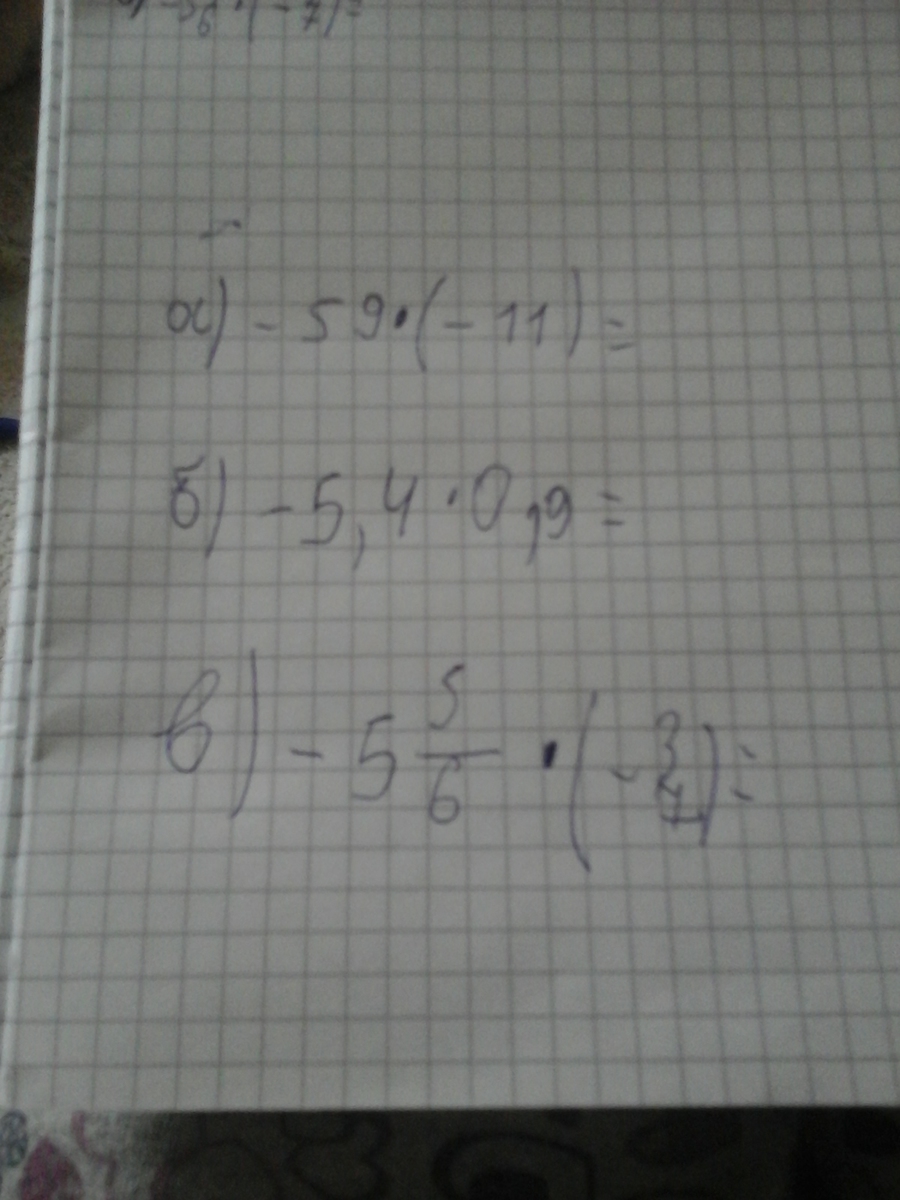 а) - 59 · (- 11) =
б) - 5,4 · 0,9 =
в) - 5 5/6 · (- 3/7) =